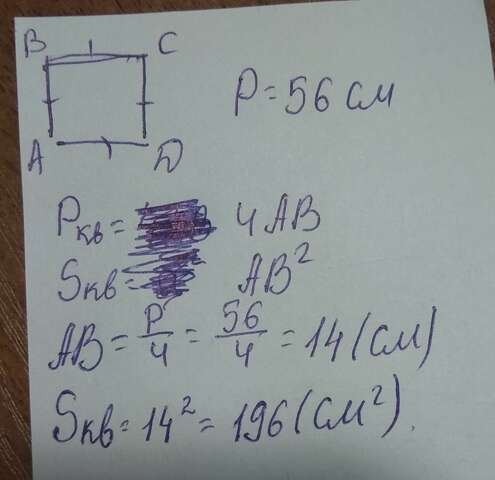 B C
P = 56 см
A D
Pкв = 4 AB
Sкв = AB²
AB = P/4 = 56/4 = 14 (см)
Sкв = 14² = 196 (см²).